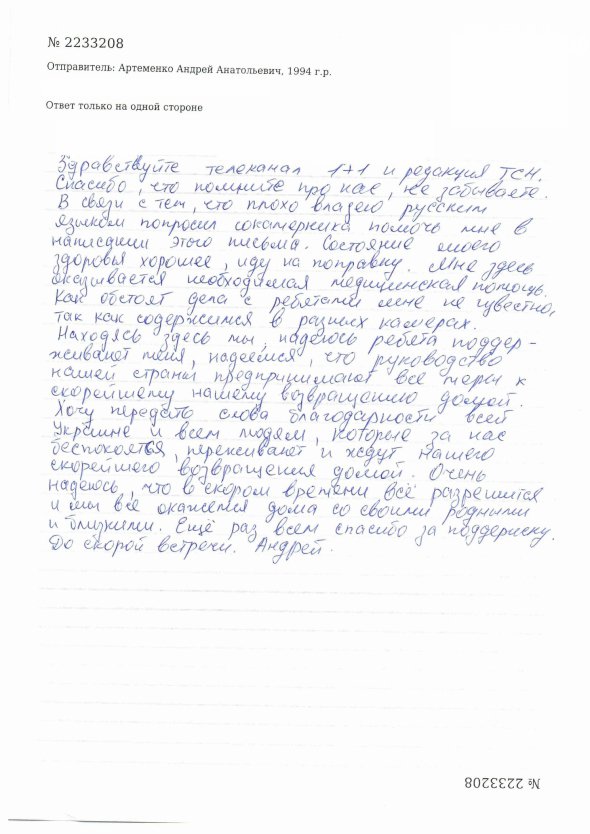 № 2233208
Отправитель: Артеменко Андрей Анатольевич, 1994 г.р.
Ответ только на одной стороне
Здравствуйте телеканал 1+1 и редакция ТСН.
Спасибо, что помните про нас, не забываете.
В связи с тем, что плохо владею русским
языком попросил сокамерника помочь мне в
написании этого письма. Состояние моего
здоровья хорошее, иду на поправку. Мне здесь
оказывается необходимая медицинская помощь.
Как обстоят дела с ребятами мне не известно,
так как содержимся в разных камерах.
Находясь здесь мы, надеюсь ребята поддер-
живают меня, надеемся, что руководство
нашей страны предпринимают все меры к
скорейшему нашему возвращению домой.
Хочу передать слова благодарности всей
Украине и всем людям, которые за нас
беспокоятся, переживают и ждут нашего
скорейшего возвращения домой. Очень
надеюсь, что в скором времени всё разрешится
и мы все окажемся дома со своими родными
и близкими. Ещё раз всем спасибо за поддержку.
До скорой встречи. Андрей.
№ 2233208